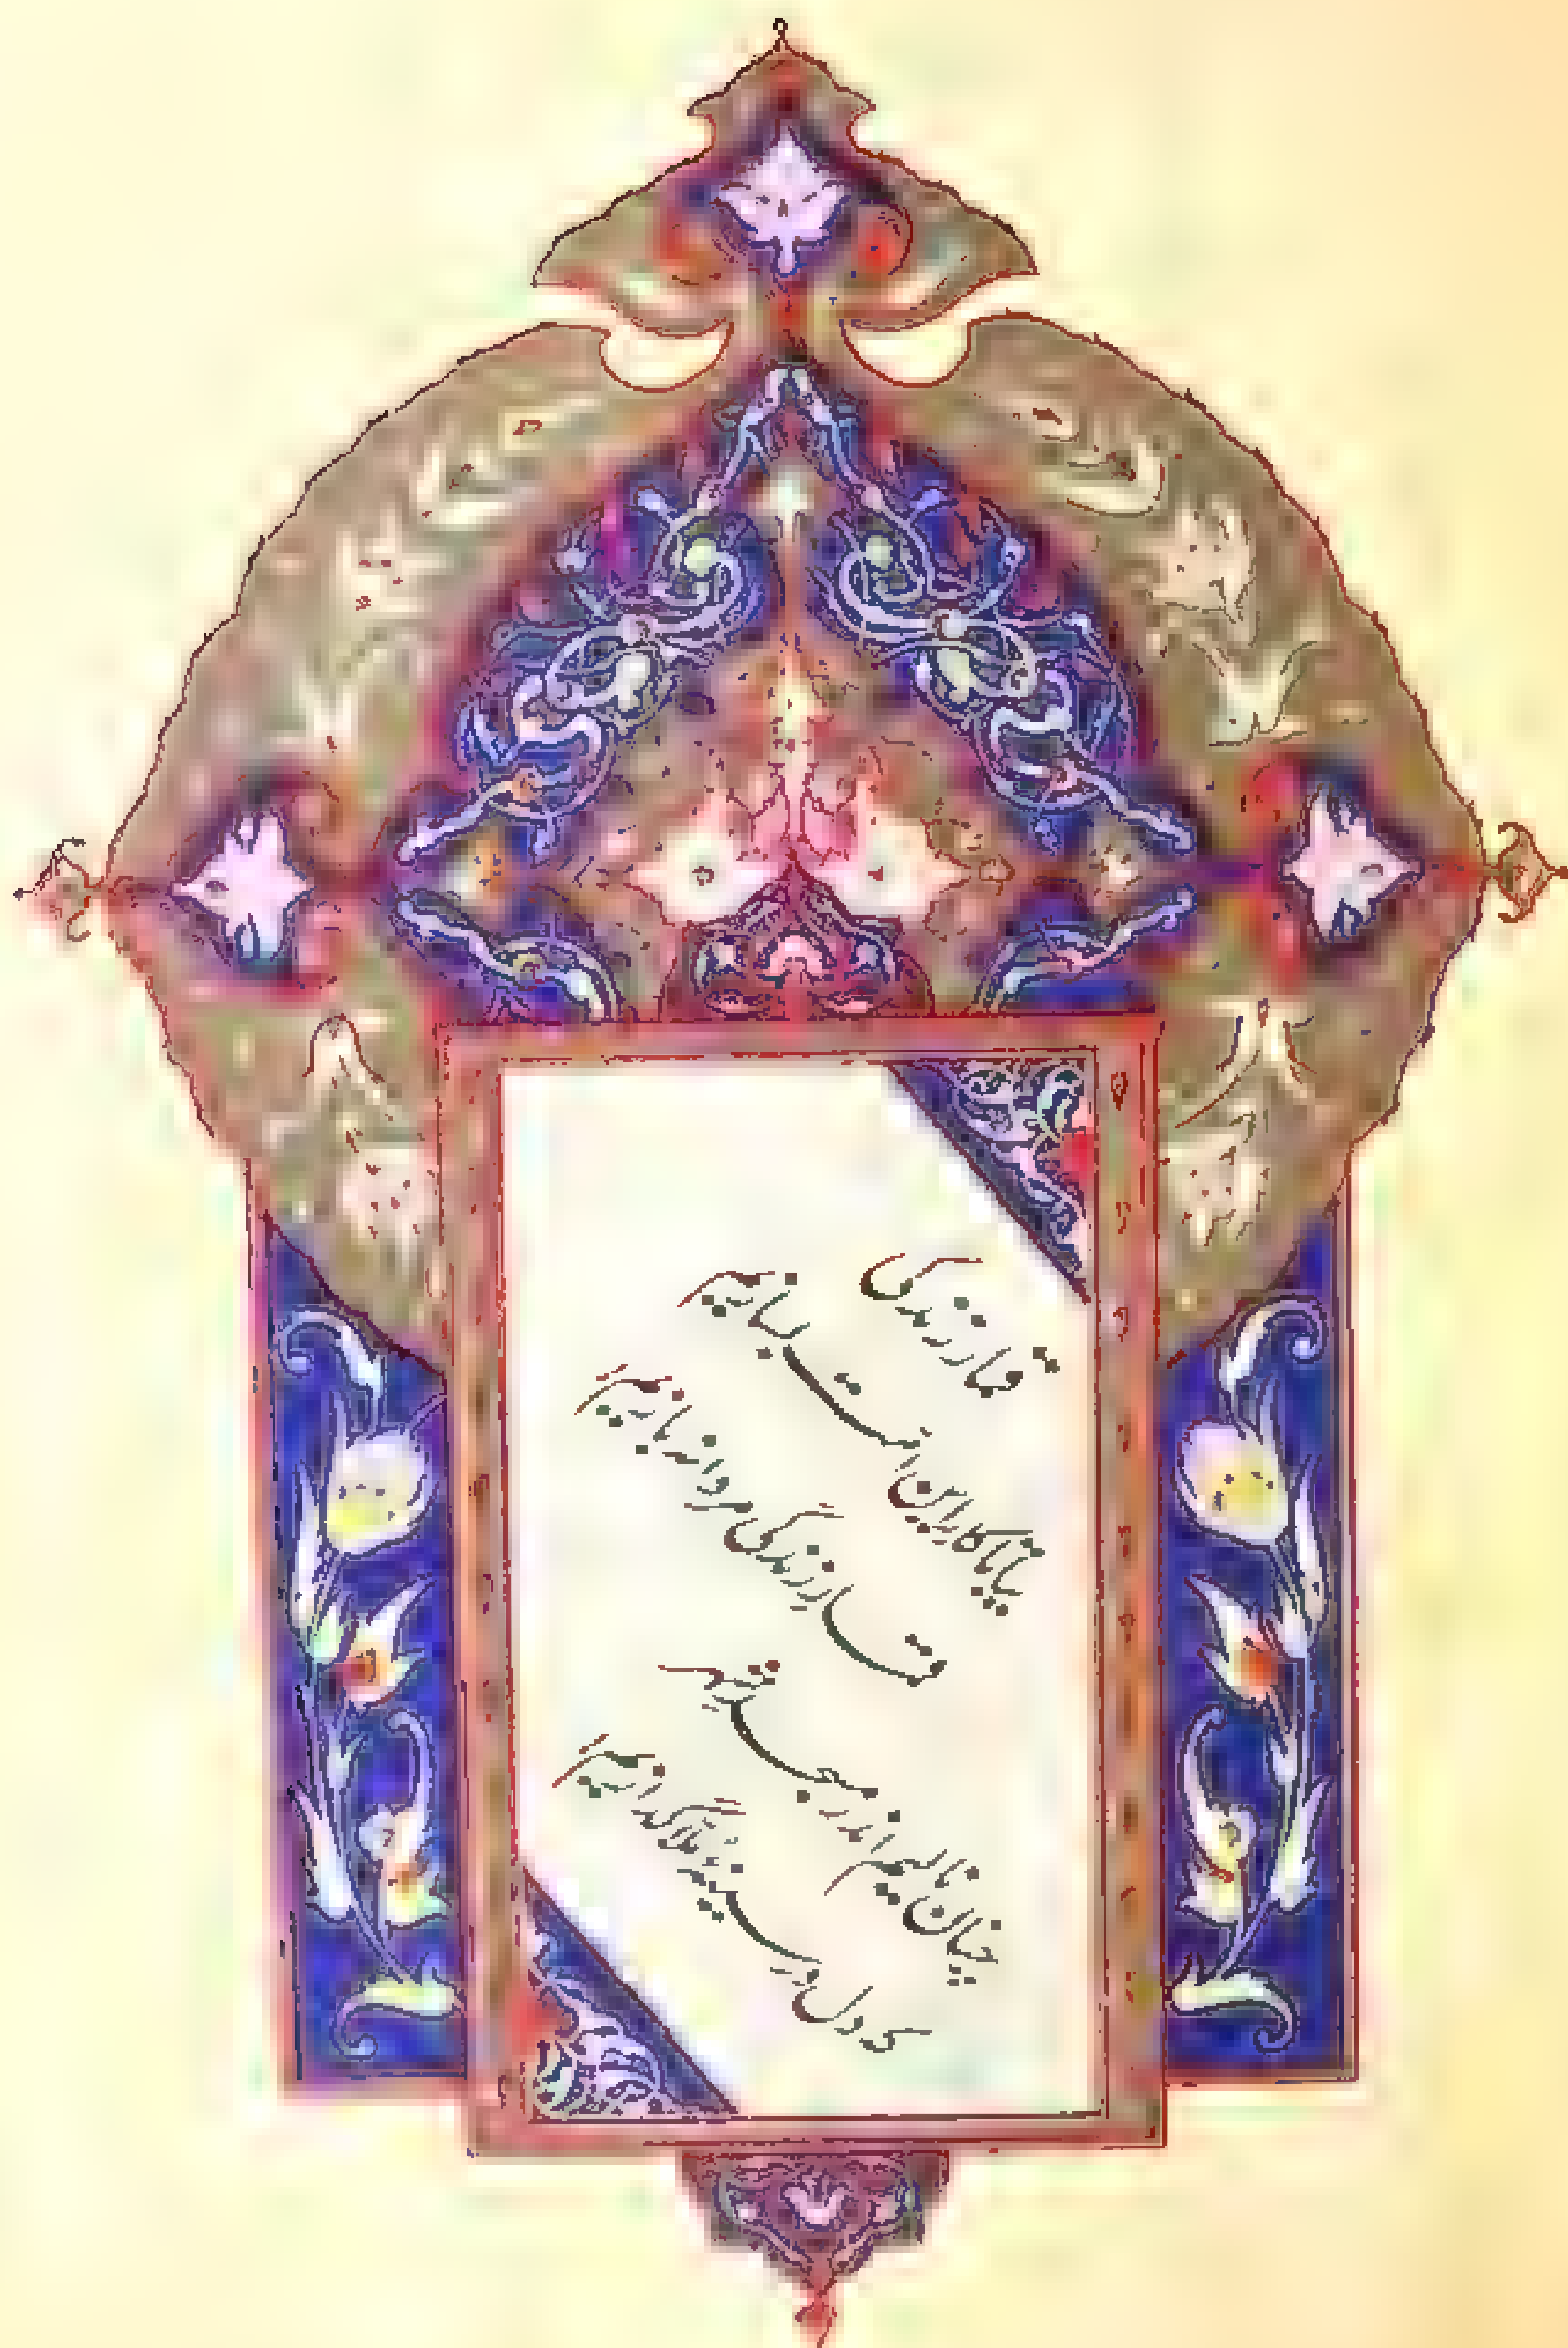 قمار زندگی
بیا تا کار این امت بسازیم
قمار زندگی مردانه بازیم
چنان نالیم اندر مسجد شهر
که دل در سینهٔ ملا گدازیم